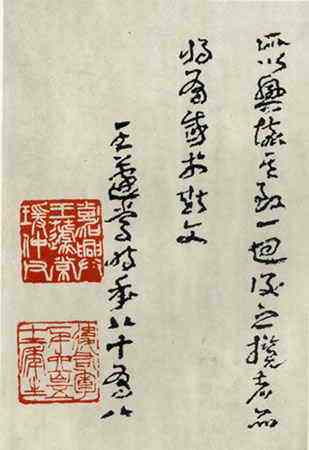 所以興懷其致一也後之攬者亦
將有感於斯文
王蘧常時年八十有八
嘉興
王蘧常
瑗仲父